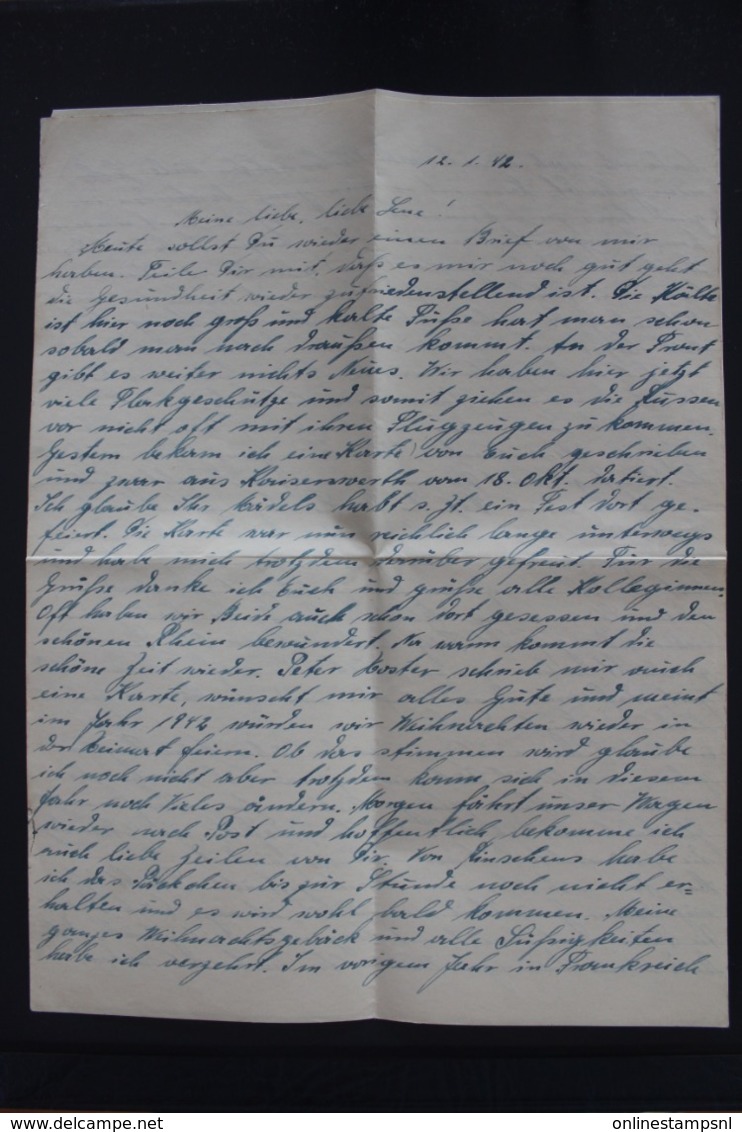 12.1.42.
Meine liebe, liebe Lene!
Heute sollst Du wieder einen Brief von mir
haben. Teile Dir mit, daß es mir noch gut geht
die Gesundheit wieder zufriedenstellend ist. Die Kälte
ist hier noch groß und kalte Füße hat man schon
sobald man nach draußen kommt. An der Front
gibt es weiter nichts Neues. Wir haben hier jetzt
viele Flakgeschütze und somit ziehen es die Russen
vor nicht oft mit ihren Flugzeugen zu kommen.
Gestern bekam ich eine Karte von Euch geschrieben
und zwar aus Kaiserswerth vom 18. Okt. datiert.
Ich glaube Ihr Mädels habt s. Zt. ein Fest dort ge-
feiert. Die Karte war nun reichlich lange unterwegs
und habe mich trotzdem darüber gefreut. Für die
Grüße danke ich Euch und grüße alle Kolleginnen.
Oft haben wir Beide auch schon dort gesessen und den
schönen Rhein bewundert. Na wann kommt die
schöne Zeit wieder. Peter schrieb mir auch
eine Karte, wünscht mir alles Gute und meint
im Jahr 1942 würden wir Weihnachten wieder in
der Heimat feiern. Ob das stimmen wird glaube
ich noch nicht aber trotzdem kann sich in diesem
Jahr noch Vieles ändern. Morgen fährt unser Wagen
wieder nach Post und hoffentlich bekomme ich
auch liebe Zeilen von Dir. Von habe
ich das Päckchen bis zur Stunde noch nicht er=
halten und es wird wohl bald kommen. Meine
ganzes Weihnachtsgebäck und alle Süßigkeiten
habe ich verzehrt. Im vorigem Jahr in Frankreich
onlinestampsnl